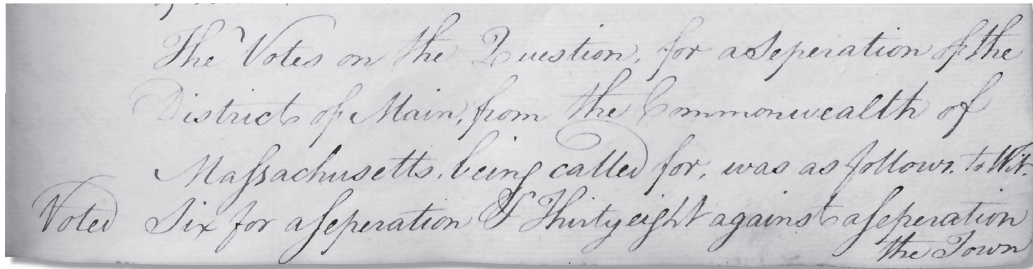 The Votes on the Question, for a Seperation of the
District of Main, from the Commonwealth of
Massachusetts, being called for, was as follows. to Wit.
Voted Six for a seperation & Thirty eight against a seperation
the Town